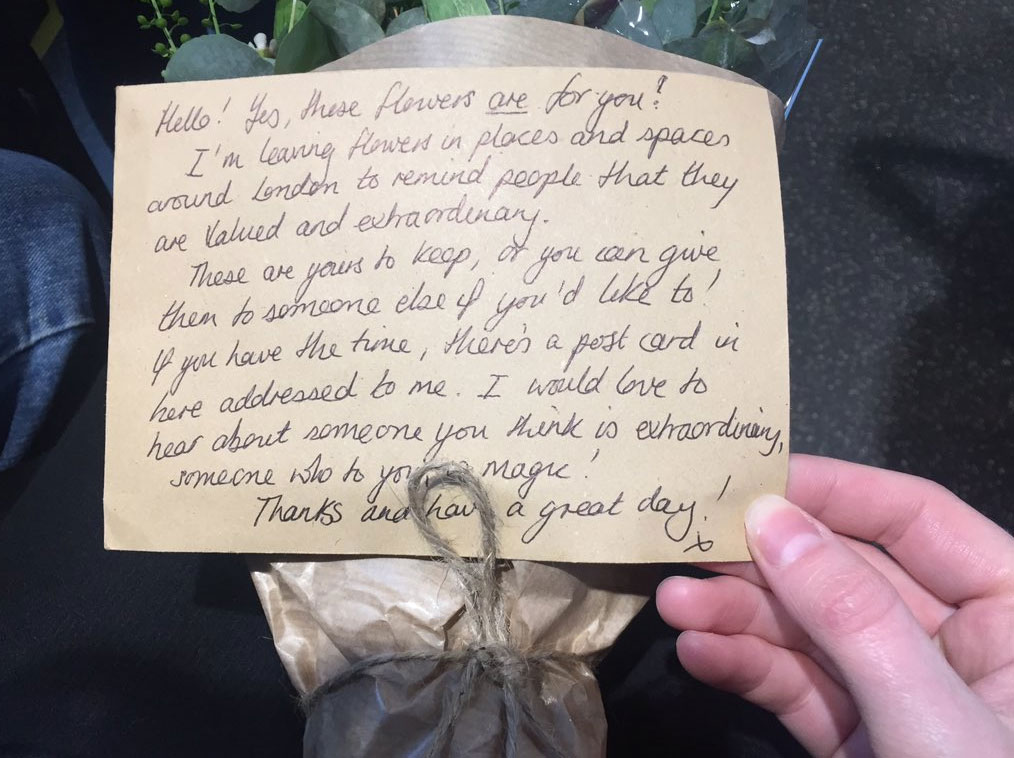 Hello! Yes, these flowers are for you!
I'm leaving flowers in places and spaces
around London to remind people that they
are valued and extraordinary.
These are yours to keep, or you can give
them to someone else if you'd like to!
If you have the time, there's a post card in
here addressed to me. I would love to
hear about someone you think is extraordinary,
someone who to you is magic!
Thanks and have a great day!
x